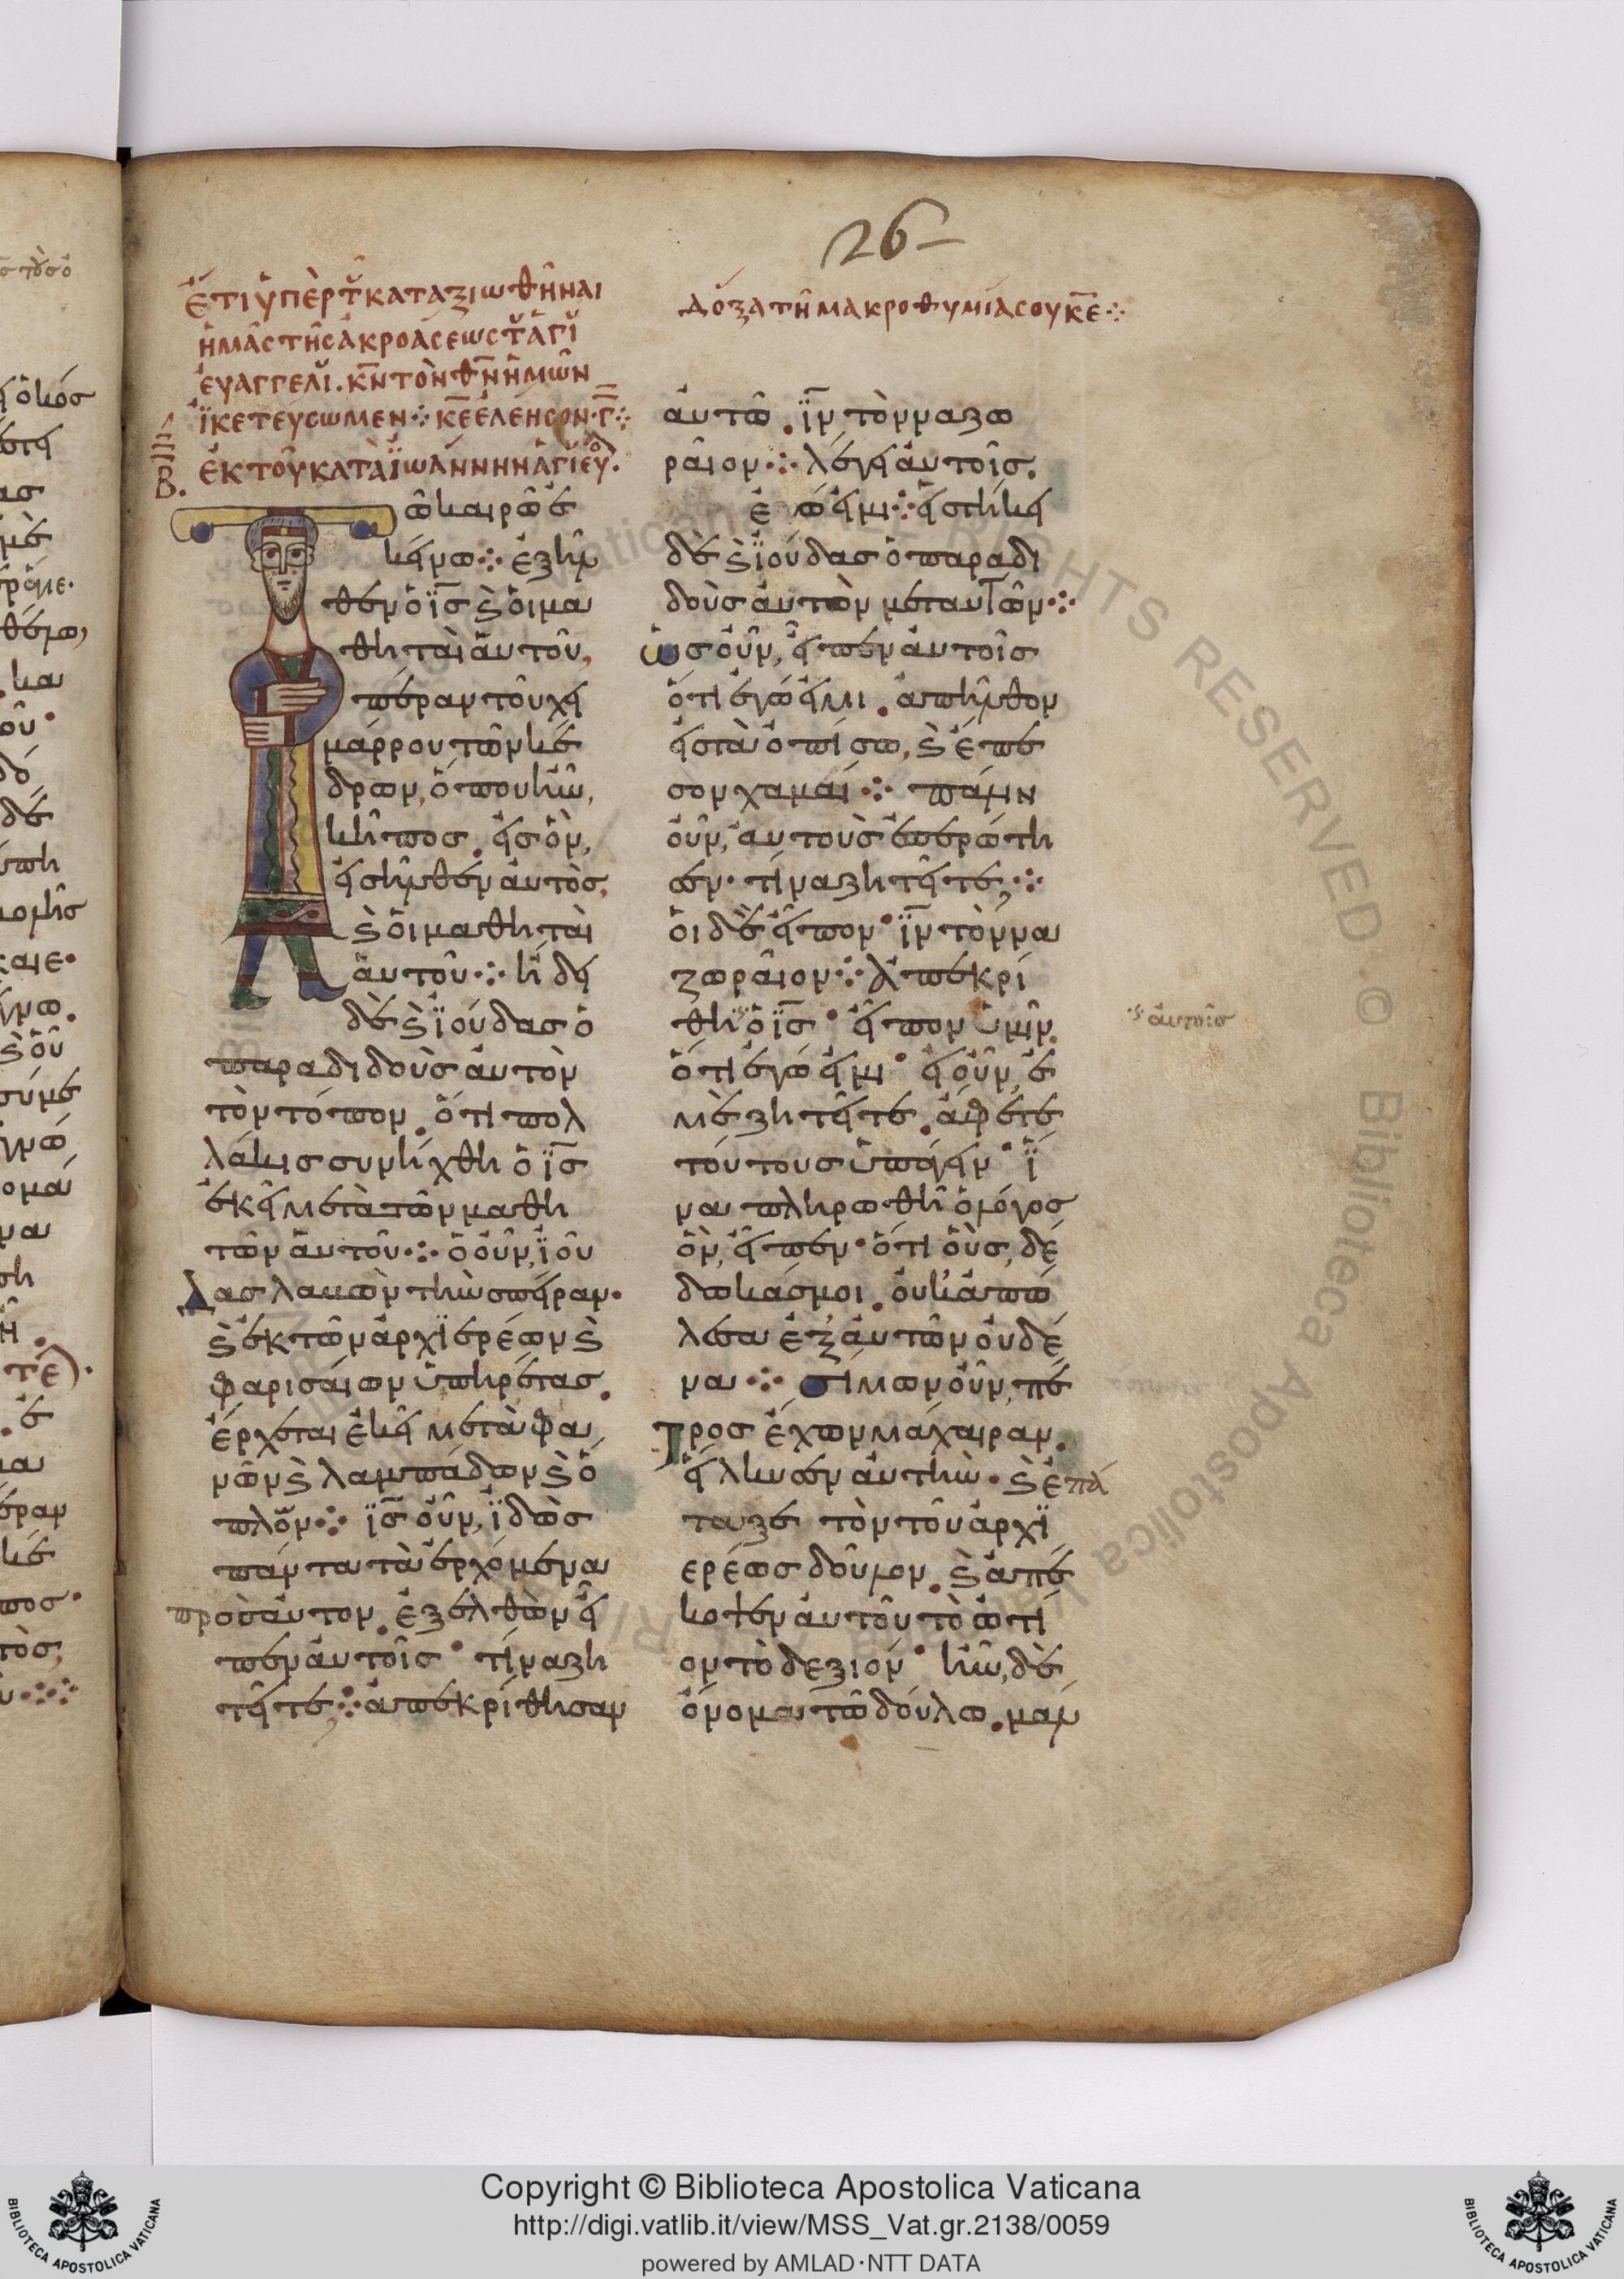 26
ἔτι ὑπὲρ τοῦ καταξιωθῆναι
ἡμᾶς τῆς ἀκροάσεως τοῦ ἁγίου
ἐυαγγελίου. κ̅ν̅ τὸν θ̅ν̅ ἡμῶν
ἱκετεύσωμεν ⁘ κ̅ε̅ ἐλέησον. γ̅ ⁘
Β. ἐκ τοῦ κατὰ Ἰωάννην ἁγίου ευ.
ῶ καιρῶ ἐ
κείνω ⁘ ἐξῆλ
θεν ὁ ϊ̅ς̅ ϗ̀ οἱ μα
θηταὶ ἀυτοῦ,
πέραν τοῦ χει
μάρρου τῶν κέ
δρων, ὅπου ἦν,
κῆπος. εἰς ὃν,
εἰσῆλθεν ἀυτὸς,
ϗ̀ οἱ μαθηταὶ
ἀυτοῦ ⁘ ἤδει
δὲ ϗ̀ ϊούδας ὁ
παραδιδοὺς ἀυτὸν
τὸν τόπον. ὅτι πολ
λάκις συνήχθη ὁ ϊ̅ς̅
ἐκεῖ μετὰ τῶν μαθη
τῶν ἀυτοῦ ⁘ ὁ οὖν, ϊού
δας λαβὼν τὴν σπείραν·
ϗ̀ ἐκ τῶν ἀρχϊερέων ϗ̀
φαρισαίων ὑπηρέτας.
ἔρχεται ἐκεῖ μετὰ φα
νῶν ϗ̀ λαμπάδων ϗ̀ ὅ
πλων ⁘ ϊ̅ς̅ οὖν, ϊδὼς
πάντα τὰ ἐρχόμενα
προσ ἀυτον. ἐξελθὼν εἶ
πεν ἀυτοῖς· τίνα ζη
τεῖτε; ⁘ ἀπεκρίθησαν
δόξα τῆ μακροθυμία σου κ̅ε̅ ⁘
ἀυτῶ. ϊ̅ν̅ τὸν ναζω
ραῖον ⁘ λέγει ἀυτοῖς.
ἐγώ εἰμι ⁘ εἱστήκει
δὲ ϗ̀ ϊούδας ὁ παραδι
δοὺς ἀυτὸν μεταυτῶν ⁘
ὡς οὖν, εἶπεν ἀυτοῖς
ὅτι ἐγώ εἰμι. ἀπῆλθον
εἰς τὰ ὀπίσω, ϗ̀ ἔπε
σον χαμαί ⁘ πάλιν
οὖν, ἀυτοὺς ἐπερώτη
σεν· τίνα ζητεῖτε; ⁘
οἱ δὲ εἶπον· ϊ̅ν̅ τὸν να
ζωραῖον ⁘ ἀπεκρί
θη ὁ ϊ̅ς̅· εἶπον ὑμῖν.
ὅτι ἐγώ εἰμι· εἰ οὖν, ἐ
μὲ ζητεῖτε. ἄφετε
τούτους ὑπάγειν· ἵ
να πληρωθῆ ὁ λόγος
ὃν, εἶπεν· ὅτι οὓς, δέ
δωκάς μοι. οὐκ ἀπώ
λεσα ἐξ ἀυτῶν οὐδέ
να ⁘ σίμων οὖν, πέ
τρος ἔχων μάχαιραν.
εἵλκυσεν ἀυτήν· ϗ̀ ἔπά
ταξε τὸν τοῦ ἀρχϊ
ερέως δοῦλον. ϗ̀ ἀπέ
κοψεν ἀυτοῦ τὸ ὠτί
ον τὸ δεξιόν· ἦν, δὲ
ὄνομα τῶ δούλω. μάλ
ἀυτοῖς
Copyright © Biblioteca Apostolica Vaticana
http://digi.vatlib.it/view/MSS_Vat.gr.2138/0059
powered by AMLAD·NTT DATA
BIBLIOTECA APOSTOLICA VATICANA
BIBLIOTECA APOSTOLICA VATICANA